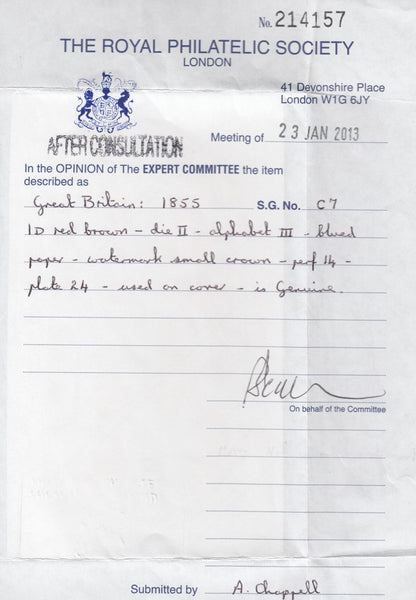 No. 214157
THE ROYAL PHILATELIC SOCIETY
LONDON
41 Devonshire Place
London W1G 6JY
AFTER CONSULTATION
Meeting of 23 JAN 2013
In the OPINION of The EXPERT COMMITTEE the item
described as
Great Britain: 1855 S.G. No. C7
1D red brown - die II - alphabet III - blued
paper - watermark small crown - perf 14 -
plate 24 - used on cover - is Genuine.
On behalf of the Committee
Submitted by A. Chappell